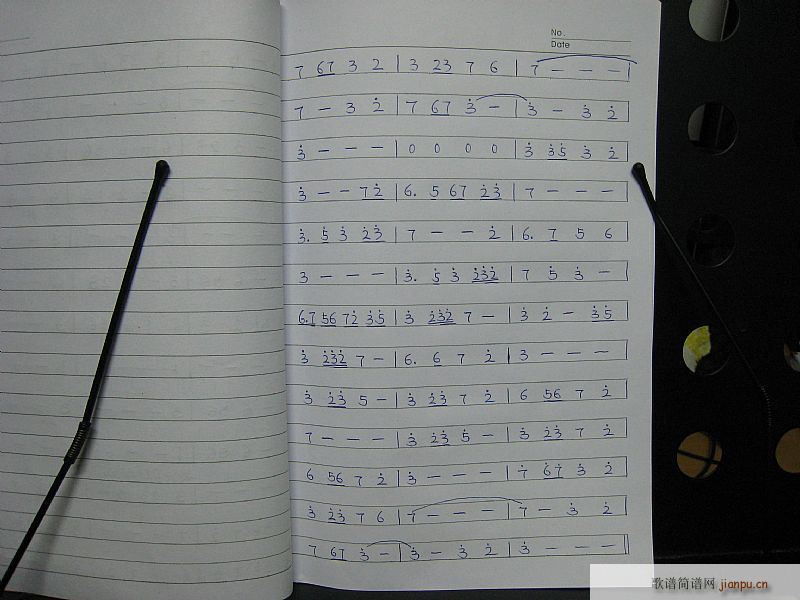 No.
Date
7 67 3 2 | 3 23 7 6 | 7 – – – |
7 – 3 2̇ | 7 67 3̇ – | 3̇ – 3̇ 2̇ |
3̇ – – – | 0 0 0 0 | 3̇ 3̇5̇ 3̇ 2̇ |
3̇ – – 72̇ | 6. 5 67 2̇3̇ | 7 – – – |
3̇. 5̇ 3̇ 2̇3̇ | 7 – – 2̇ | 6. 7 5 6 |
3 – – – | 3̇. 5̇ 3̇ 2̇3̇2̇ | 7 5̇ 3̇ – |
6.7 56 72̇ 3̇5̇ | 3̇ 2̇3̇2̇ 7 – | 3̇ 2̇ – 3̇5̇ |
3̇ 2̇3̇2̇ 7 – | 6. 6 7 2̇ | 3 – – – |
3̇ 2̇3̇ 5 – | 3̇ 2̇3̇ 7 2̇ | 6 56 7 2̇ |
7 – – – | 3̇ 2̇3̇ 5̇ – | 3̇ 2̇3̇ 7 2̇ |
6 56 7 2̇ | 3̇ – – – | 7̇ 6̇7̇ 3̇ 2̇ |
3̇ 2̇3̇ 7 6 | 7 – – – | 7 – 3̇ 2̇ |
7 67 3̇ – | 3̇ – 3̇ 2̇ | 3̇ – – – ||
歌谱简谱网 jianpu.cn